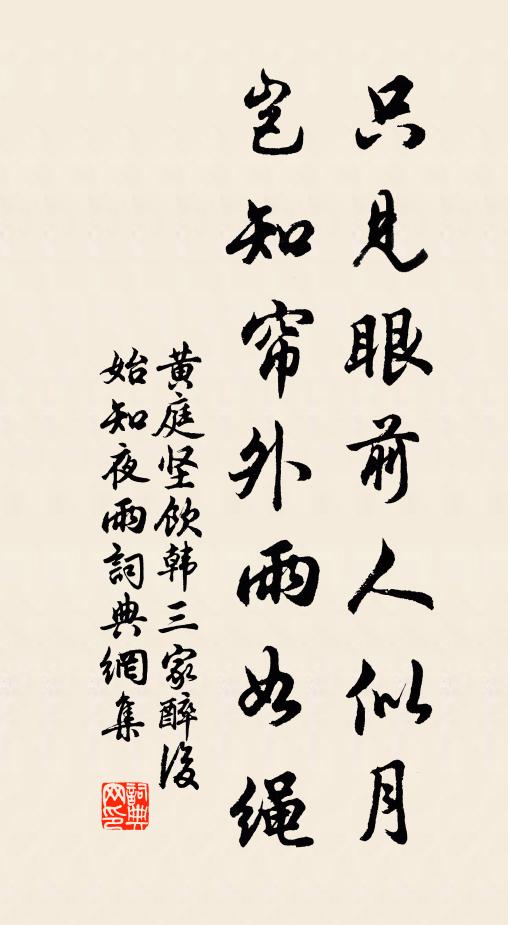 只见眼前人似月
岂知帘外雨如绳
黄庭坚饮韩三家醉後
始知夜雨詞典網集
詞典
网印